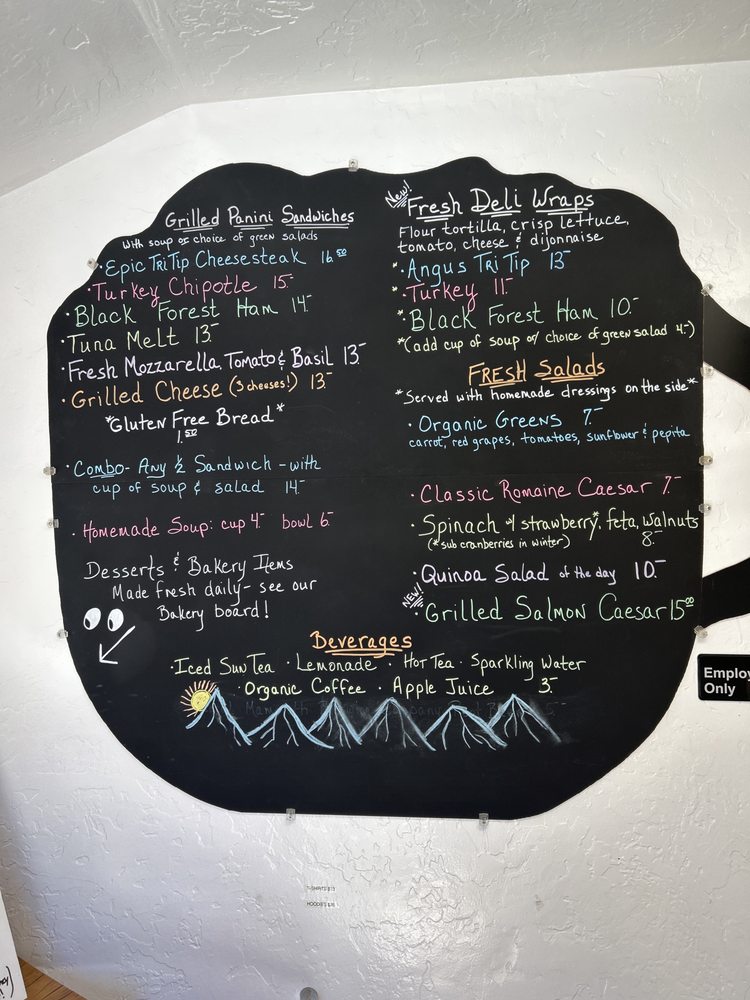 Grilled Panini Sandwiches
With soup or choice of green salads
· Epic TriTip Cheesesteak 16.50
· Turkey Chipotle 15-
· Black Forest Ham 14.-
· Tuna Melt 13.-
· Fresh Mozzarella, Tomato & Basil 13-
· Grilled Cheese (3 cheeses!) 13-
*Gluten Free Bread*
1.50
· Combo- Any ½ Sandwich - with
cup of soup & salad 14.-
· Homemade Soup: cup 4.- bowl 6.-
Desserts & Bakery Items
Made fresh daily- see our
Bakery board!
New!
Fresh Deli Wraps
Flour tortilla, crisp lettuce,
tomato, cheese & dijonnaise
*· Angus Tri Tip 13-
*· Turkey 11.-
*· Black Forest Ham 10.-
*(add cup of soup or choice of green salad 4.-)
FRESH Salads
*Served with homemade dressings on the side*
· Organic Greens 7.-
carrot, red grapes, tomatoes, sunflower & pepita
· Classic Romaine Caesar 7.-
· Spinach w/ strawberry*, feta, walnuts
(*sub cranberries in winter) 8.-
· Quinoa Salad of the day 10.-
NEW!
· Grilled Salmon Caesar 15.00
Beverages
· Iced Sun Tea · Lemonade · Hot Tea · Sparkling Water
· Organic Coffee · Apple Juice 3.-
Employ
Only
T-SHIRTS $15